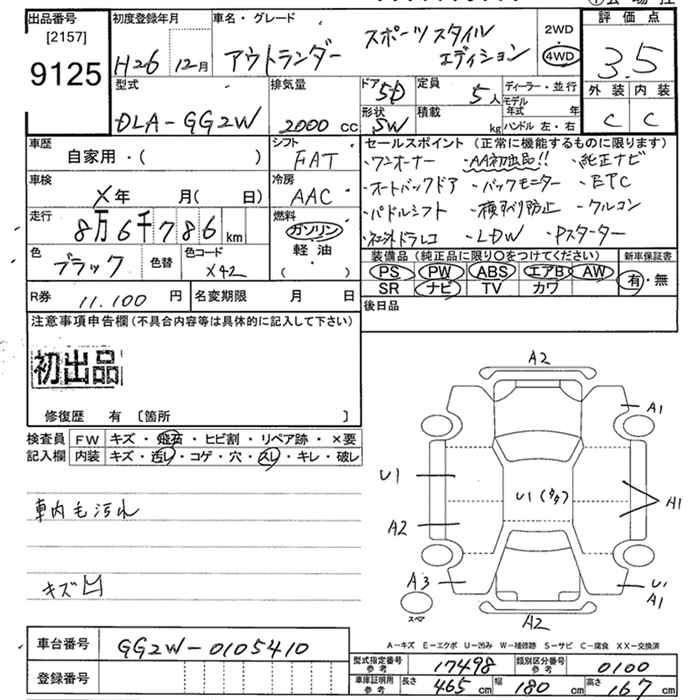 出品番号 初度登録年月 車名・グレード 2WD 評価点
[2157]
9125 H26 12月 アウトランダー スポーツスタイルエディション 4WD 3.5
型式 排気量 ドア 5D 定員 5人 ディーラー・並行 外装 内装
DLA-GG2W 2000cc 形状 SW 積載 kg モデル年式 年 C C
ハンドル 左・右
車歴 シフト セールスポイント(正常に機能するものに限ります)
自家用・( ) FAT ・ワンオーナー ・AA初出品!! ・純正ナビ
車検 冷房 ・オートバックドア ・バックモニター ・ETC
X年 月( 日) AAC ・パドルシフト ・横すべり防止 ・クルコン
走行 燃料 ・社外ドラレコ ・LDW ・Pスターター
8万6千786km ガソリン
色 色替 色コード 軽油 装備品(純正品に限り○をつけてください) 新車保証書
ブラック X42 ・( ) PS PW ABS エアB AW 有・無
SR ナビ TV カワ
R券 11.100円 名変期限 月 日 後日品
注意事項申告欄(不具合内容等は具体的に記入して下さい)
初出品
修復歴 有 [箇所 ]
検査員 FW キズ・飛石・ヒビ割・リペア跡・×要
記入欄 内装 キズ・汚レ・コゲ・穴・スレ・キレ・破レ
車内毛汚れ
キズ凹
A2
A1
U1
U1(タタ)
A1
A2
A3
U1
A1
スペア
A2
A-キズ E-エクボ U-凹み W-補修跡 S-サビ C-腐食 XX-交換済
車台番号 GG2W-0105410 型式指定番号参考 17498 類別区分番号参考 0100
登録番号 車庫証明用参考 長さ 465cm 幅 180cm 高さ 167cm